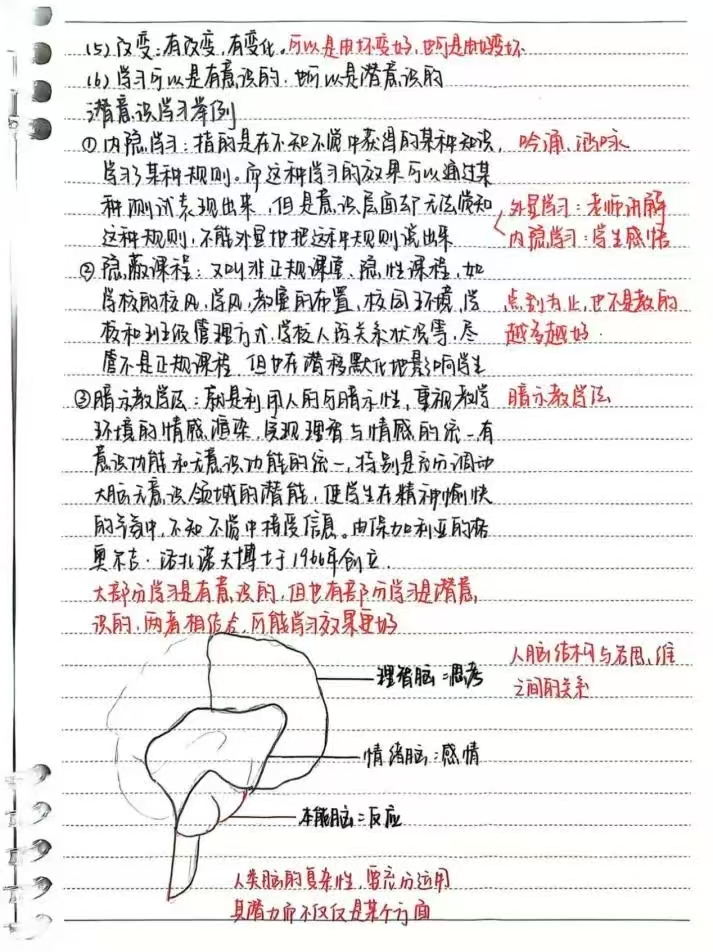 (5) 改变:有改变,有变化。可以是由坏变好,也可是由好变坏
(6) 学习可以是有意识的,也可以是潜意识的
潜意识学习举例
①内隐学习:指的是在不知不觉中获得的某种知识, 吟诵、涵咏
学习了某种规则。而这种学习的效果可以通过某
种测试表现出来,但是意识层面却无法觉知 外显学习:老师讲解
这种规则,不能外显地把这种规则说出来 内隐学习:学生感悟
②隐蔽课程:又叫非正规课堂、隐性课程,如
学校的校风、学风、教室的布置、校园环境、学 点到为止,也不是教的
校和班级管理方式、学校人际关系状况等,尽 越多越好.
管不是正规课程,但也在潜移默化地影响学生
③暗示教学法:就是利用人的可暗示性,重视教学 暗示教学法
环境的情感渲染,实现理智与情感的统一,有
意识功能和无意识功能的统一,特别是充分调动
大脑无意识领域的潜能,使学生在精神愉快
的气氛中,不知不觉中接受信息。由保加利亚的格
奥尔吉·洛扎诺夫博士于1966年创立.
大部分学习是有意识的,但也有部分学习是潜意
识的,两者相结合,可能学习效果更好
人脑结构与思维
之间的关系
理智脑:思考
情绪脑:感情
本能脑:反应
人类脑的复杂性,要充分运用
其潜力而不仅仅是某个方面